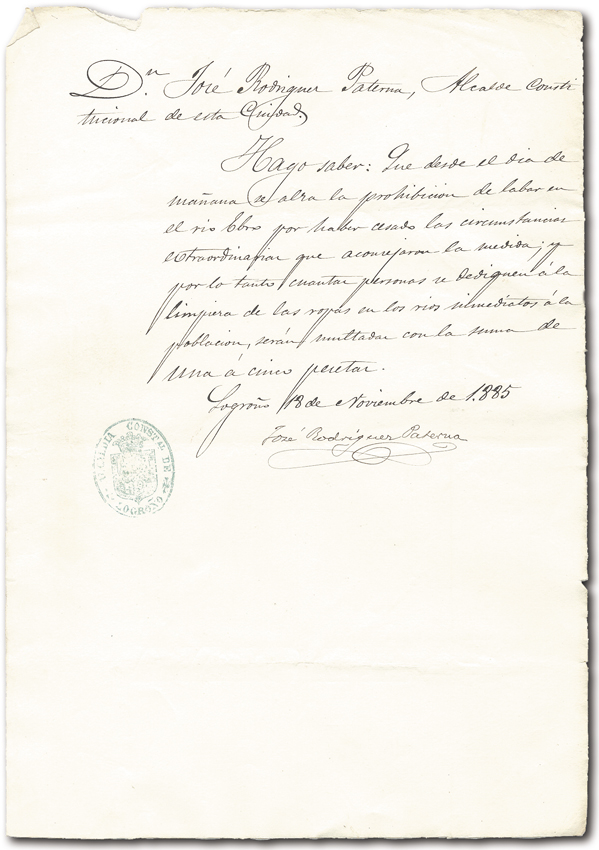 Dn. José Rodriguez Paterna, Alcalde Consti
tucional de esta Ciudad.
Hago saber: Que desde el dia de
mañana se alza la prohibicion de labar en
el rio Ebro por haber cesado las circunstancias
extraordinarias que aconsejaron la medida; y
por lo tanto cuantas personas se dediquen á la
limpieza de las ropas en los rios inmediatos á la
poblacion, serán multadas con la suma de
una á cinco pesetas.
Logroño 18 de Noviembre de 1.885
José Rodriguez Paterna
ALCALDIA CONSTAL. DE LOGROÑO